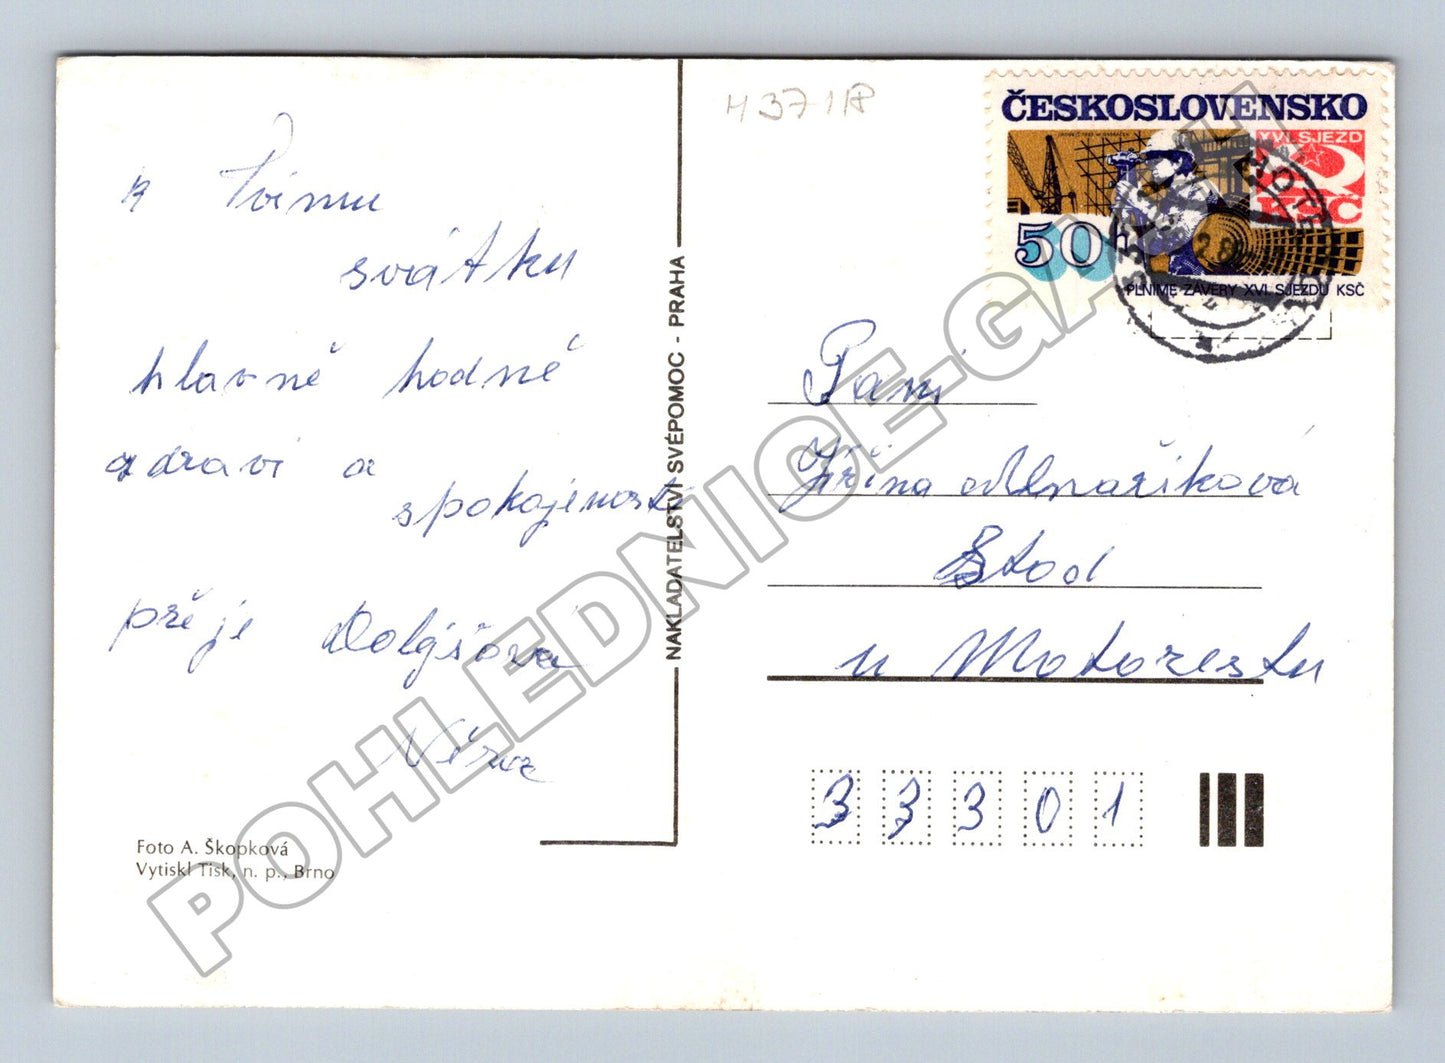 k Tvímu
svátku
hlavně hodně
zdraví a
spokojenosti
přeje Dolejšova
Věra
Foto A. Škopková
Vytiskl Tisk, n. p., Brno
NAKLADATELSTVÍ SVÉPOMOC - PRAHA
H371R
ČESKOSLOVENSKO
XVI. SJEZD
KSČ
50 h
PLNÍME ZÁVĚRY XVI. SJEZDU KSČ
Paní
Jiřina Mlnaříková
Stod
u Motorestu
33301
POHLEDNICE-GARAZH